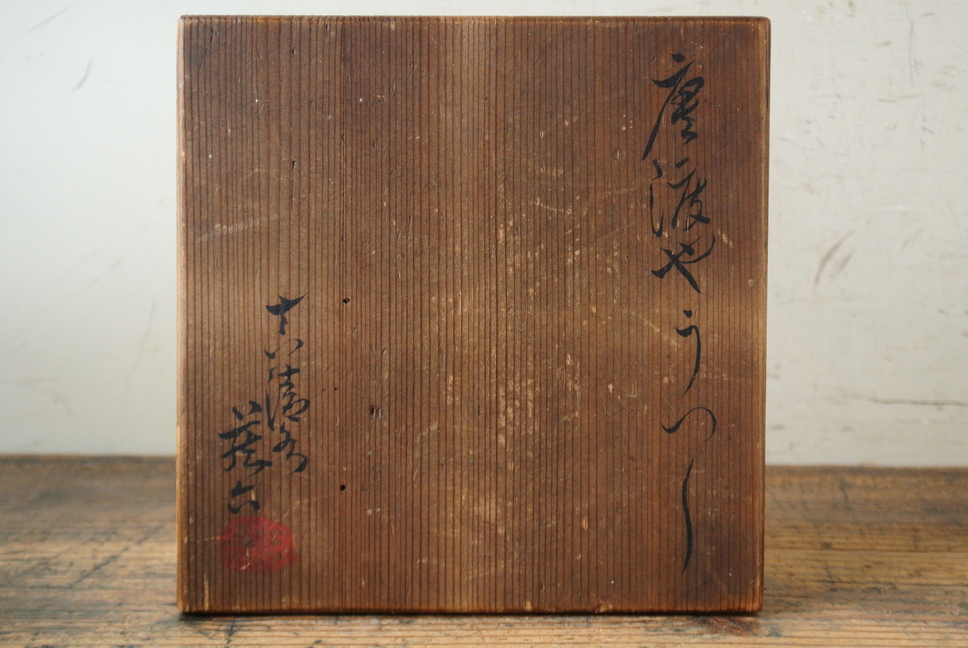 唐渡やうつし
真清水
蔵六